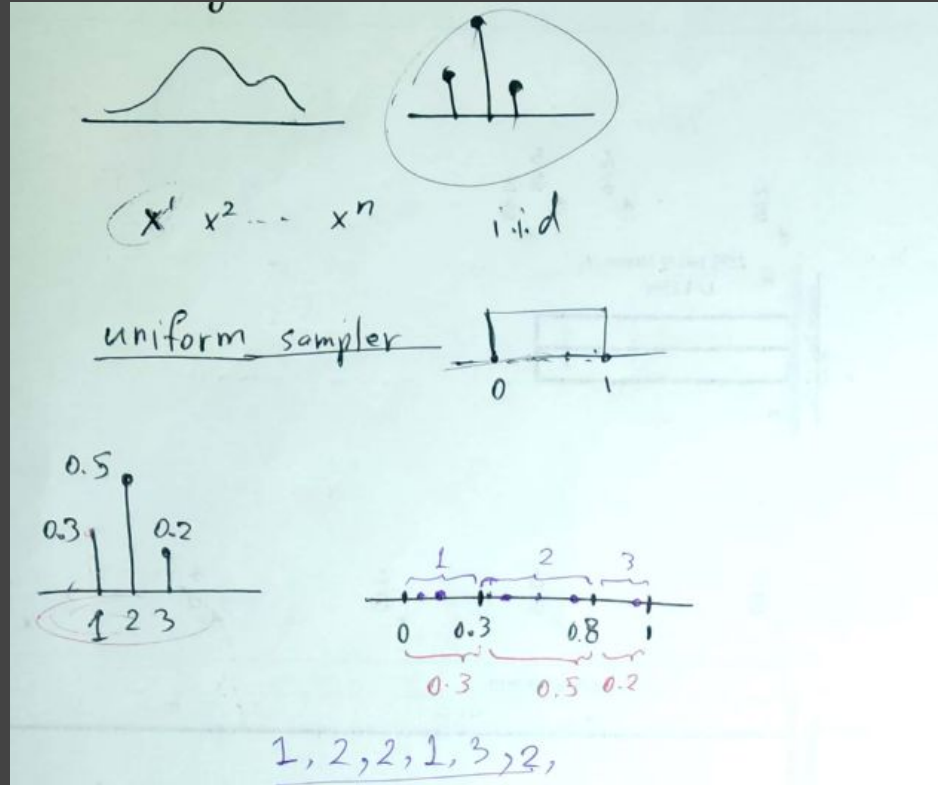 x¹ x² ... xⁿ i.i.d
uniform sampler
0 1
0.5
0.3 0.2
1 2 3
1 2 3
0 0.3 0.8 1
0.3 0.5 0.2
1, 2, 2, 1, 3, 2,